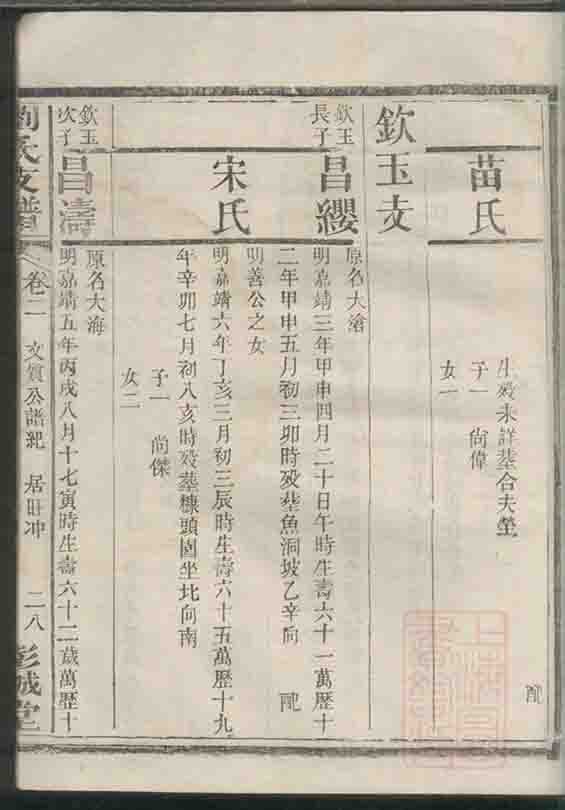 配
苗氏
生歿未詳塟合夫塋
子一 尚偉
女一
欽玉支
欽玉長子 昌纓
原名大滄
明嘉靖三年甲申四月二十日午時生壽六十一萬歷十
二年甲申五月初三卯時歿塟魚洞坡乙辛向 配
宋氏
明善公之女
明嘉靖六年丁亥三月初三辰時生壽六十五萬歷十九
年辛卯七月初八亥時歿塟糠頭園坐北向南
子一 尚傑
女二
欽玉次子 昌濤
原名大海
明嘉靖五年丙戌八月十七寅時生壽六十二歲萬歷十
劉氏支譜 卷二 文質公譜紀 居旺冲 二八 彭城堂
上海